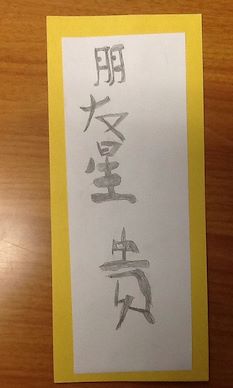 朋友星貴